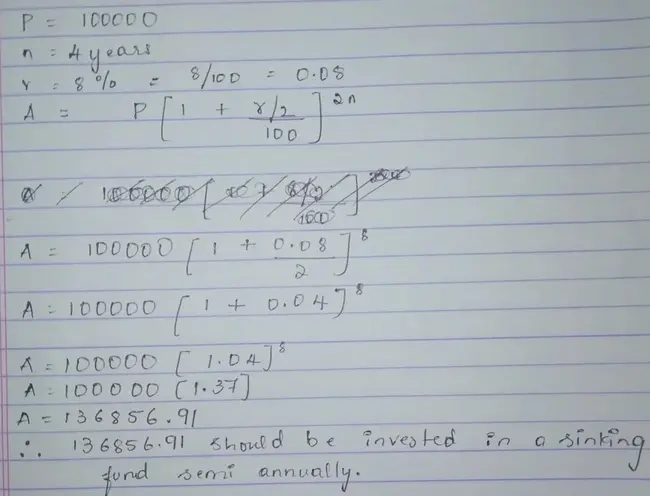 P = 100000
n = 4 years
r = 8% = 8/100 = 0.08
A = P [ 1 + r/2 / 100 ] 2n
A = 100000 [ 1 + 0.08 / 2 ] 8
A = 100000 [ 1 + 0.04 ] 8
A = 100000 [ 1.04 ] 8
A = 100000 [1.37]
A = 136856.91
∴ 136856.91 should be invested in a sinking
fund semi annually.